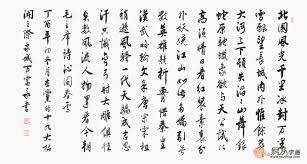 北國風光千里冰封万里
雪飘望长城内外惟餘莽
莽大河上下顿失滔滔山舞銀
蛇原驰蜡象欲与天公试比
高须晴日看红装素裹分
外妖娆江山如此多娇引无
数英雄竞折腰惜秦皇
汉武略输文采唐宗宋祖
稍逊风骚一代天骄成吉思
汗只识弯弓射大雕俱往
矣数风流人物還看今朝
毛主席诗沁园春雪
丁酉年初冬月